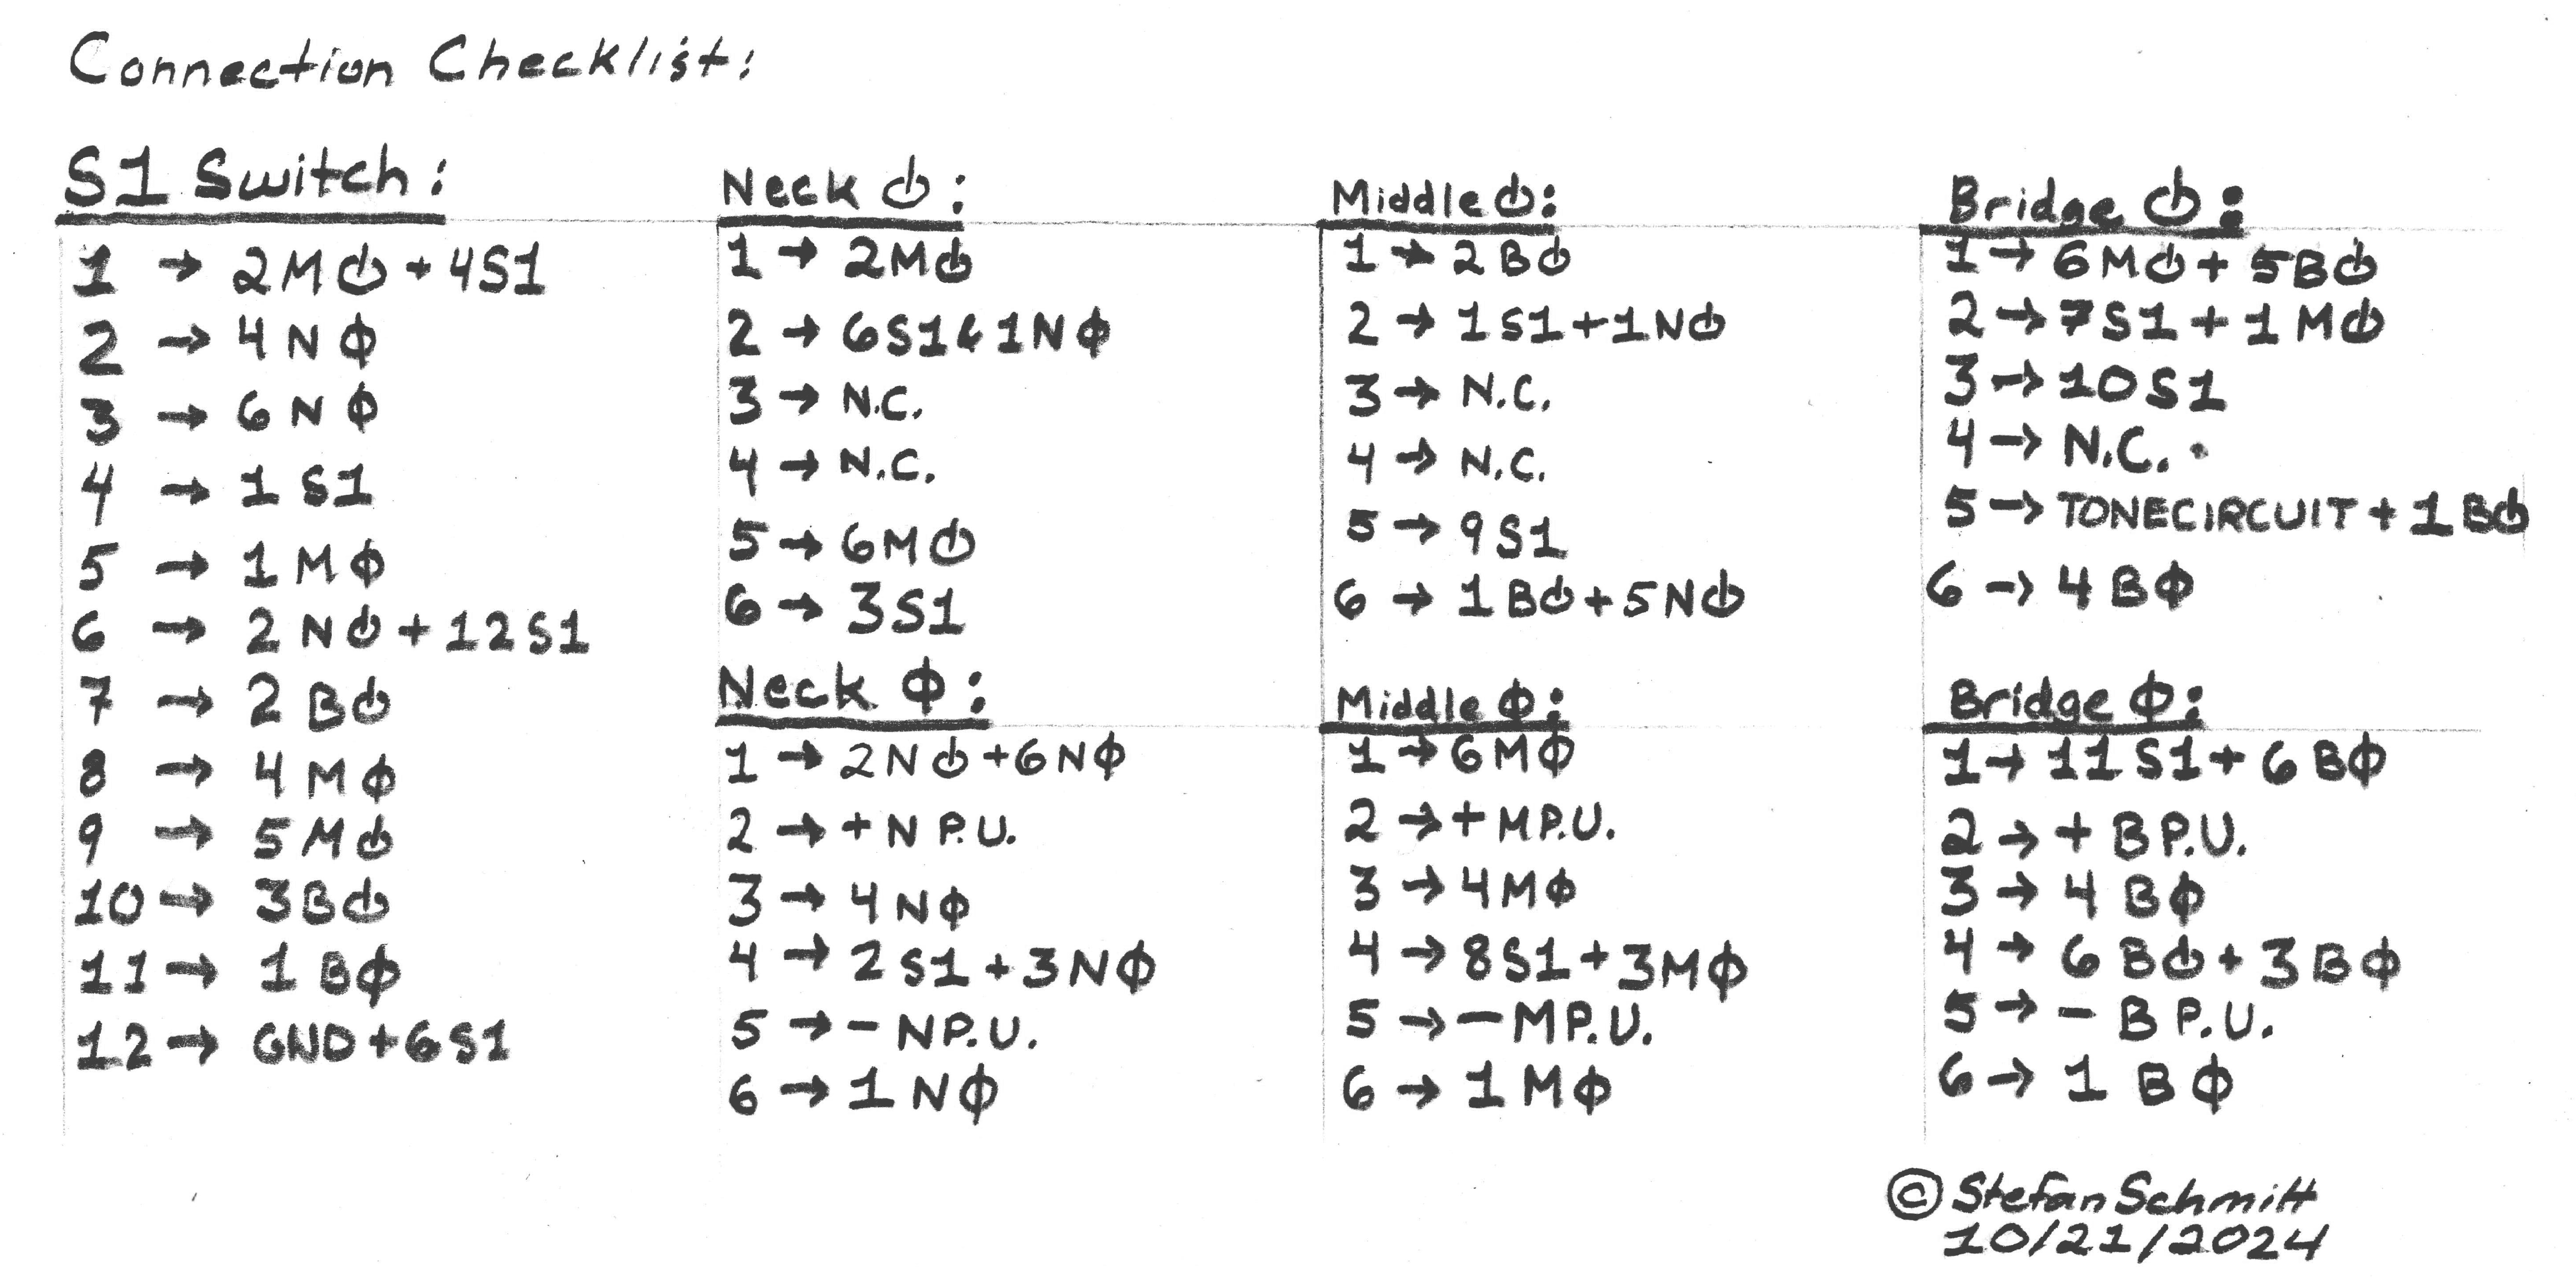 Connection Checklist:
S1 Switch:
1 → 2M⏻ + 4S1
2 → 4NΦ
3 → 6NΦ
4 → 1S1
5 → 1MΦ
6 → 2N⏻ + 12S1
7 → 2B⏻
8 → 4MΦ
9 → 5M⏻
10 → 3B⏻
11 → 1BΦ
12 → GND + 6S1
Neck ⏻:
1 → 2M⏻
2 → 6S1 & 1NΦ
3 → N.C.
4 → N.C.
5 → 6M⏻
6 → 3S1
Neck Φ:
1 → 2N⏻ + 6NΦ
2 → + N P.U.
3 → 4NΦ
4 → 2S1 + 3NΦ
5 → - N P.U.
6 → 1NΦ
Middle ⏻:
1 → 2B⏻
2 → 1S1 + 1N⏻
3 → N.C.
4 → N.C.
5 → 9S1
6 → 1B⏻ + 5N⏻
Middle Φ:
1 → 6MΦ
2 → + M P.U.
3 → 4MΦ
4 → 8S1 + 3MΦ
5 → - M P.U.
6 → 1MΦ
Bridge ⏻:
1 → 6M⏻ + 5B⏻
2 → 7S1 + 1M⏻
3 → 10S1
4 → N.C.
5 → TONECIRCUIT + 1B⏻
6 → 4BΦ
Bridge Φ:
1 → 11S1 + 6BΦ
2 → + B P.U.
3 → 4BΦ
4 → 6B⏻ + 3BΦ
5 → - B P.U.
6 → 1BΦ
© Stefan Schmitt
10/21/2024